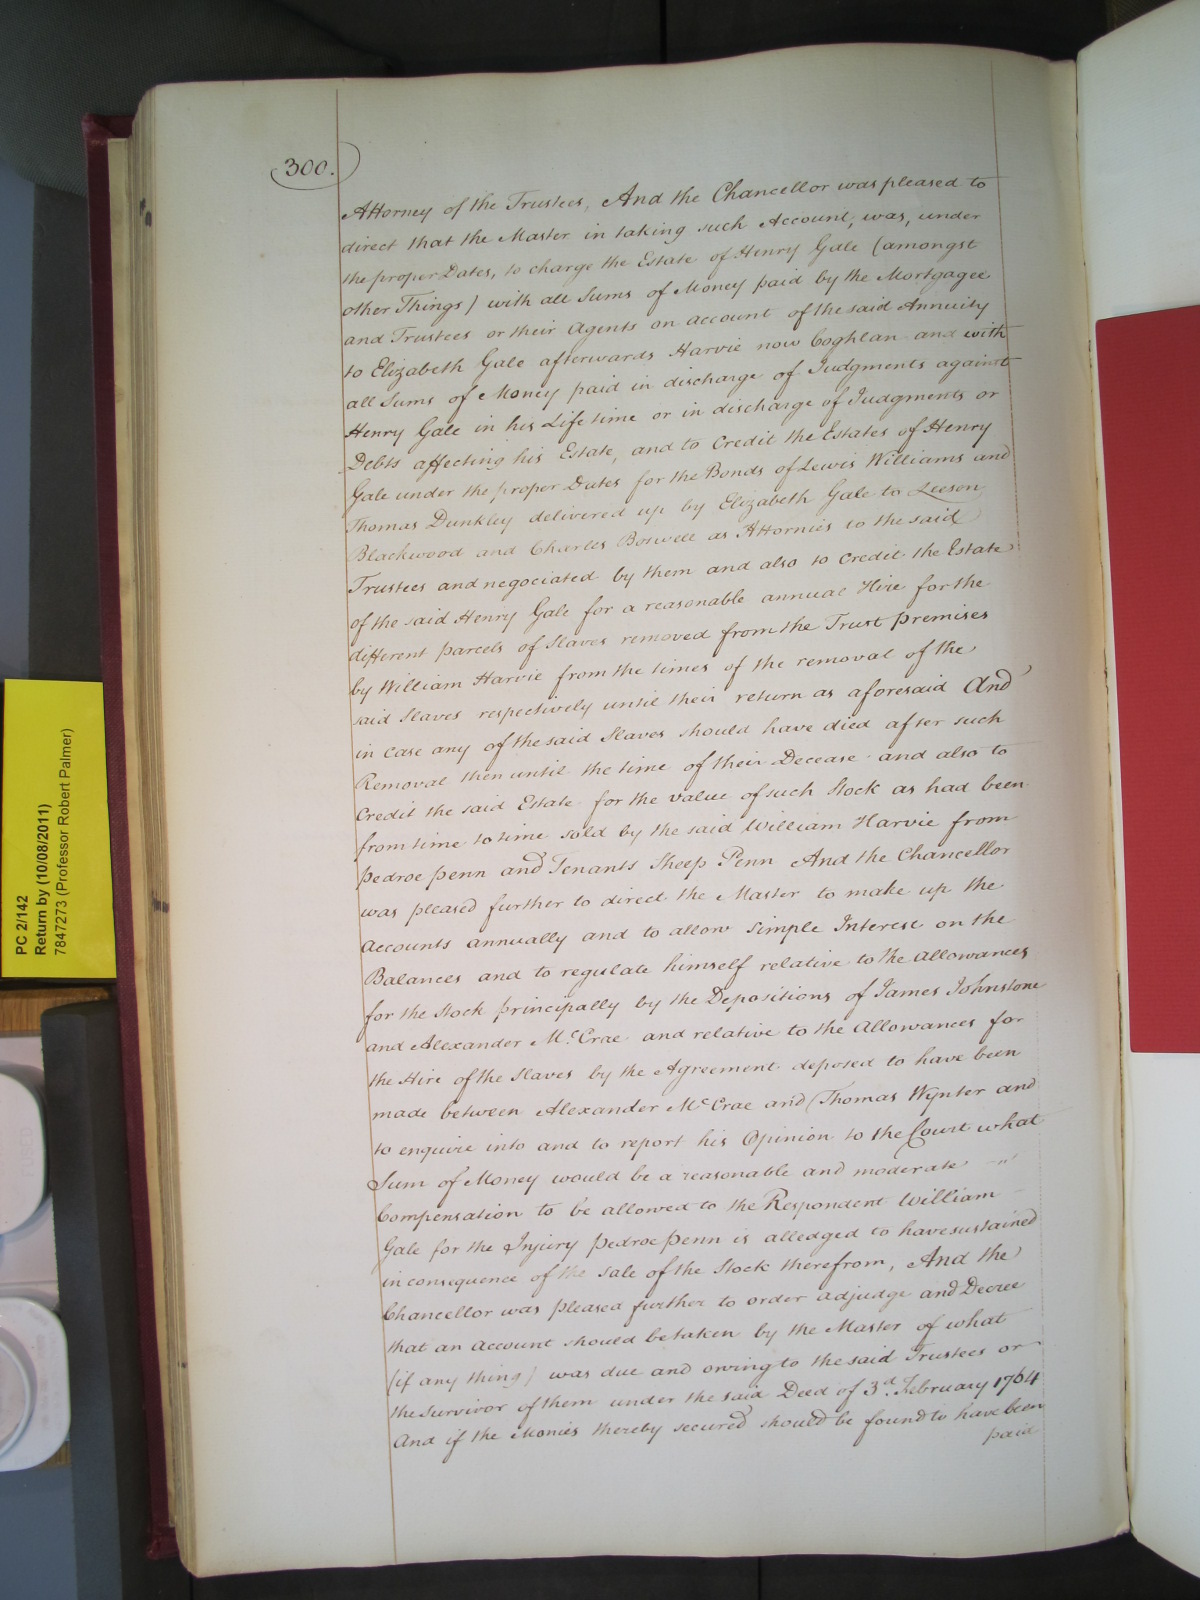 300.
Attorney of the Trustees, And the Chancellor was pleased to
direct that the Master in taking such Account, was, under
the proper Dates, to charge the Estate of Henry Gale (amongst
other Things) with all Sums of Money paid by the Mortgagee
and Trustees or their Agents on account of the said Annuity
to Elizabeth Gale afterwards Harvie now Coghlan and with
all Sums of Money paid in discharge of Judgments against
Henry Gale in his Life time or in discharge of Judgments or
Debts affecting his Estate, and to Credit the Estates of Henry
Gale under the proper Dates for the Bonds of Lewis Williams and
Thomas Dunkley delivered up by Elizabeth Gale to Leeson
Blackwood and Charles Boswell as Attornies to the said
Trustees and negociated by them and also to Credit the Estate
of the said Henry Gale for a reasonable annual Hire for the
different parcels of Slaves removed from the Trust premises
by William Harvie from the times of the removal of the
said Slaves respectively until their return as aforesaid And
in case any of the said Slaves should have died after such
Removal then until the time of their Decease and also to
Credit the said Estate for the value of such Stock as had been
from time to time sold by the said William Harvie from
pedroe penn and Tenants Sheep Penn And the Chancellor
was pleased further to direct the Master to make up the
Accounts annually and to allow Simple Interest on the
Balances and to regulate himself relative to the Allowances
for the Stock principally by the Depositions of James Johnstone
and Alexander Mc.Crae and relative to the Allowances for
the Hire of the Slaves by the Agreement deposed to have been
made between Alexander McCrae and Thomas Wynter and
to enquire into and to report his Opinion to the Court what
Sum of Money would be a reasonable and moderate
Compensation to be allowed to the Respondent William
Gale for the Injury pedroe penn is alledged to have sustained
in consequence of the Sale of the Stock therefrom, And the
Chancellor was pleased further to order adjudge and Decree
that an Account should be taken by the Master of what
(if any thing) was due and owing to the said Trustees or
the Survivor of them under the said Deed of 3d. February 1764
And if the Monies thereby secured should be found to have been
paid
PC 2/142
Return by (10/08/2011)
7847273 (Professor Robert Palmer)